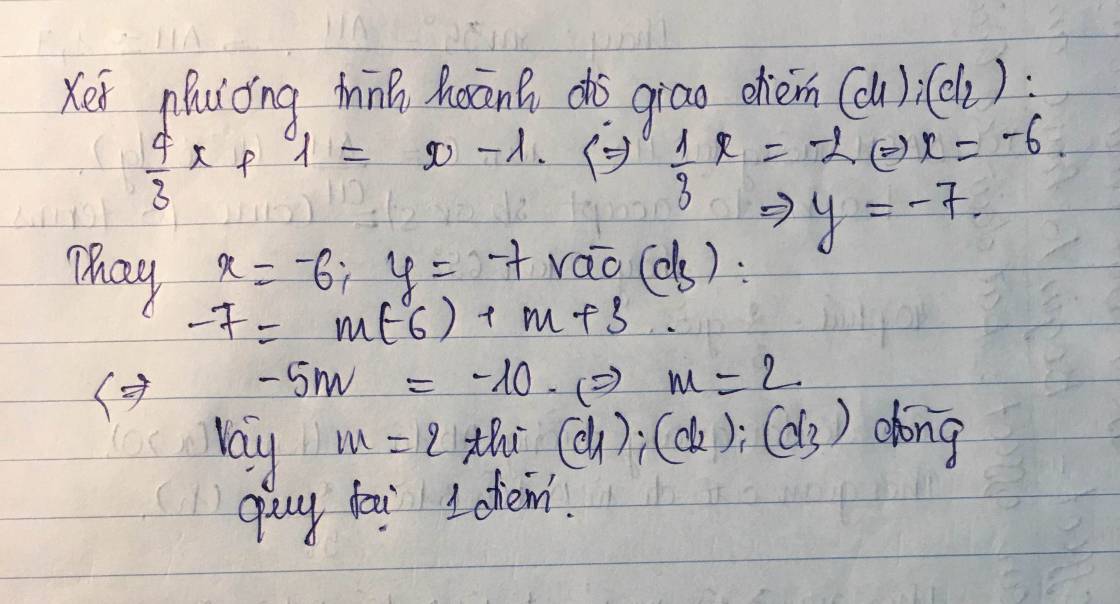 Xét phương trình hoành độ giao điểm (d1); (d2):
4/3 x + 1 = x - 1. <=> 1/3 x = -2 <=> x = -6.
=> y = -7.
Thay x = -6; y = -7 vào (d3):
-7 = m(-6) + m + 3.
<=> -5m = -10. <=> m = 2
Vậy m = 2 thì (d1); (d2); (d3) đồng
quy tại 1 điểm.